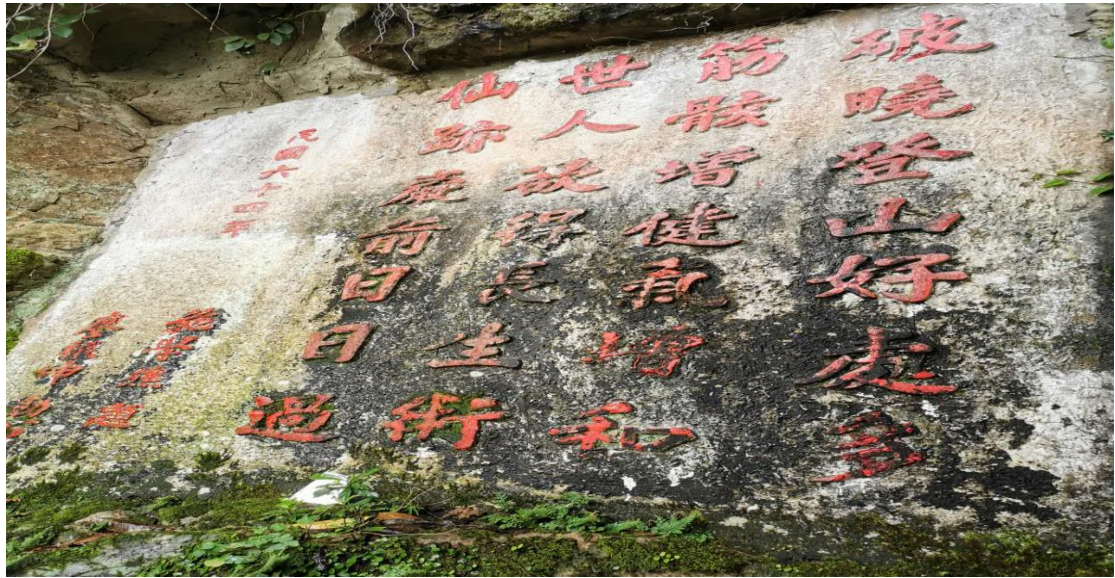 破曉登山好處多
筋骸增健氣增和
世人欲得長生術
仙跡巖前日日過
民國六十四年